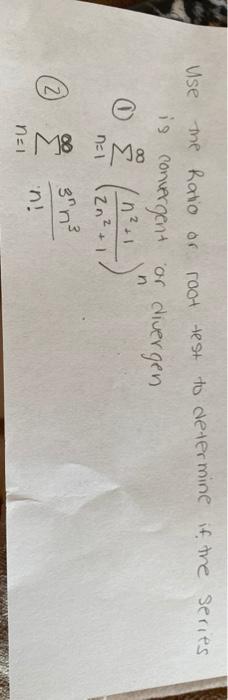 Use the Ratio or root test to determine if the series
is convergent or divergen
① ∞ Σ n=1 (n²+1 / 2n²+1)ⁿ
② ∞ Σ n=1 3ⁿn³ / n!